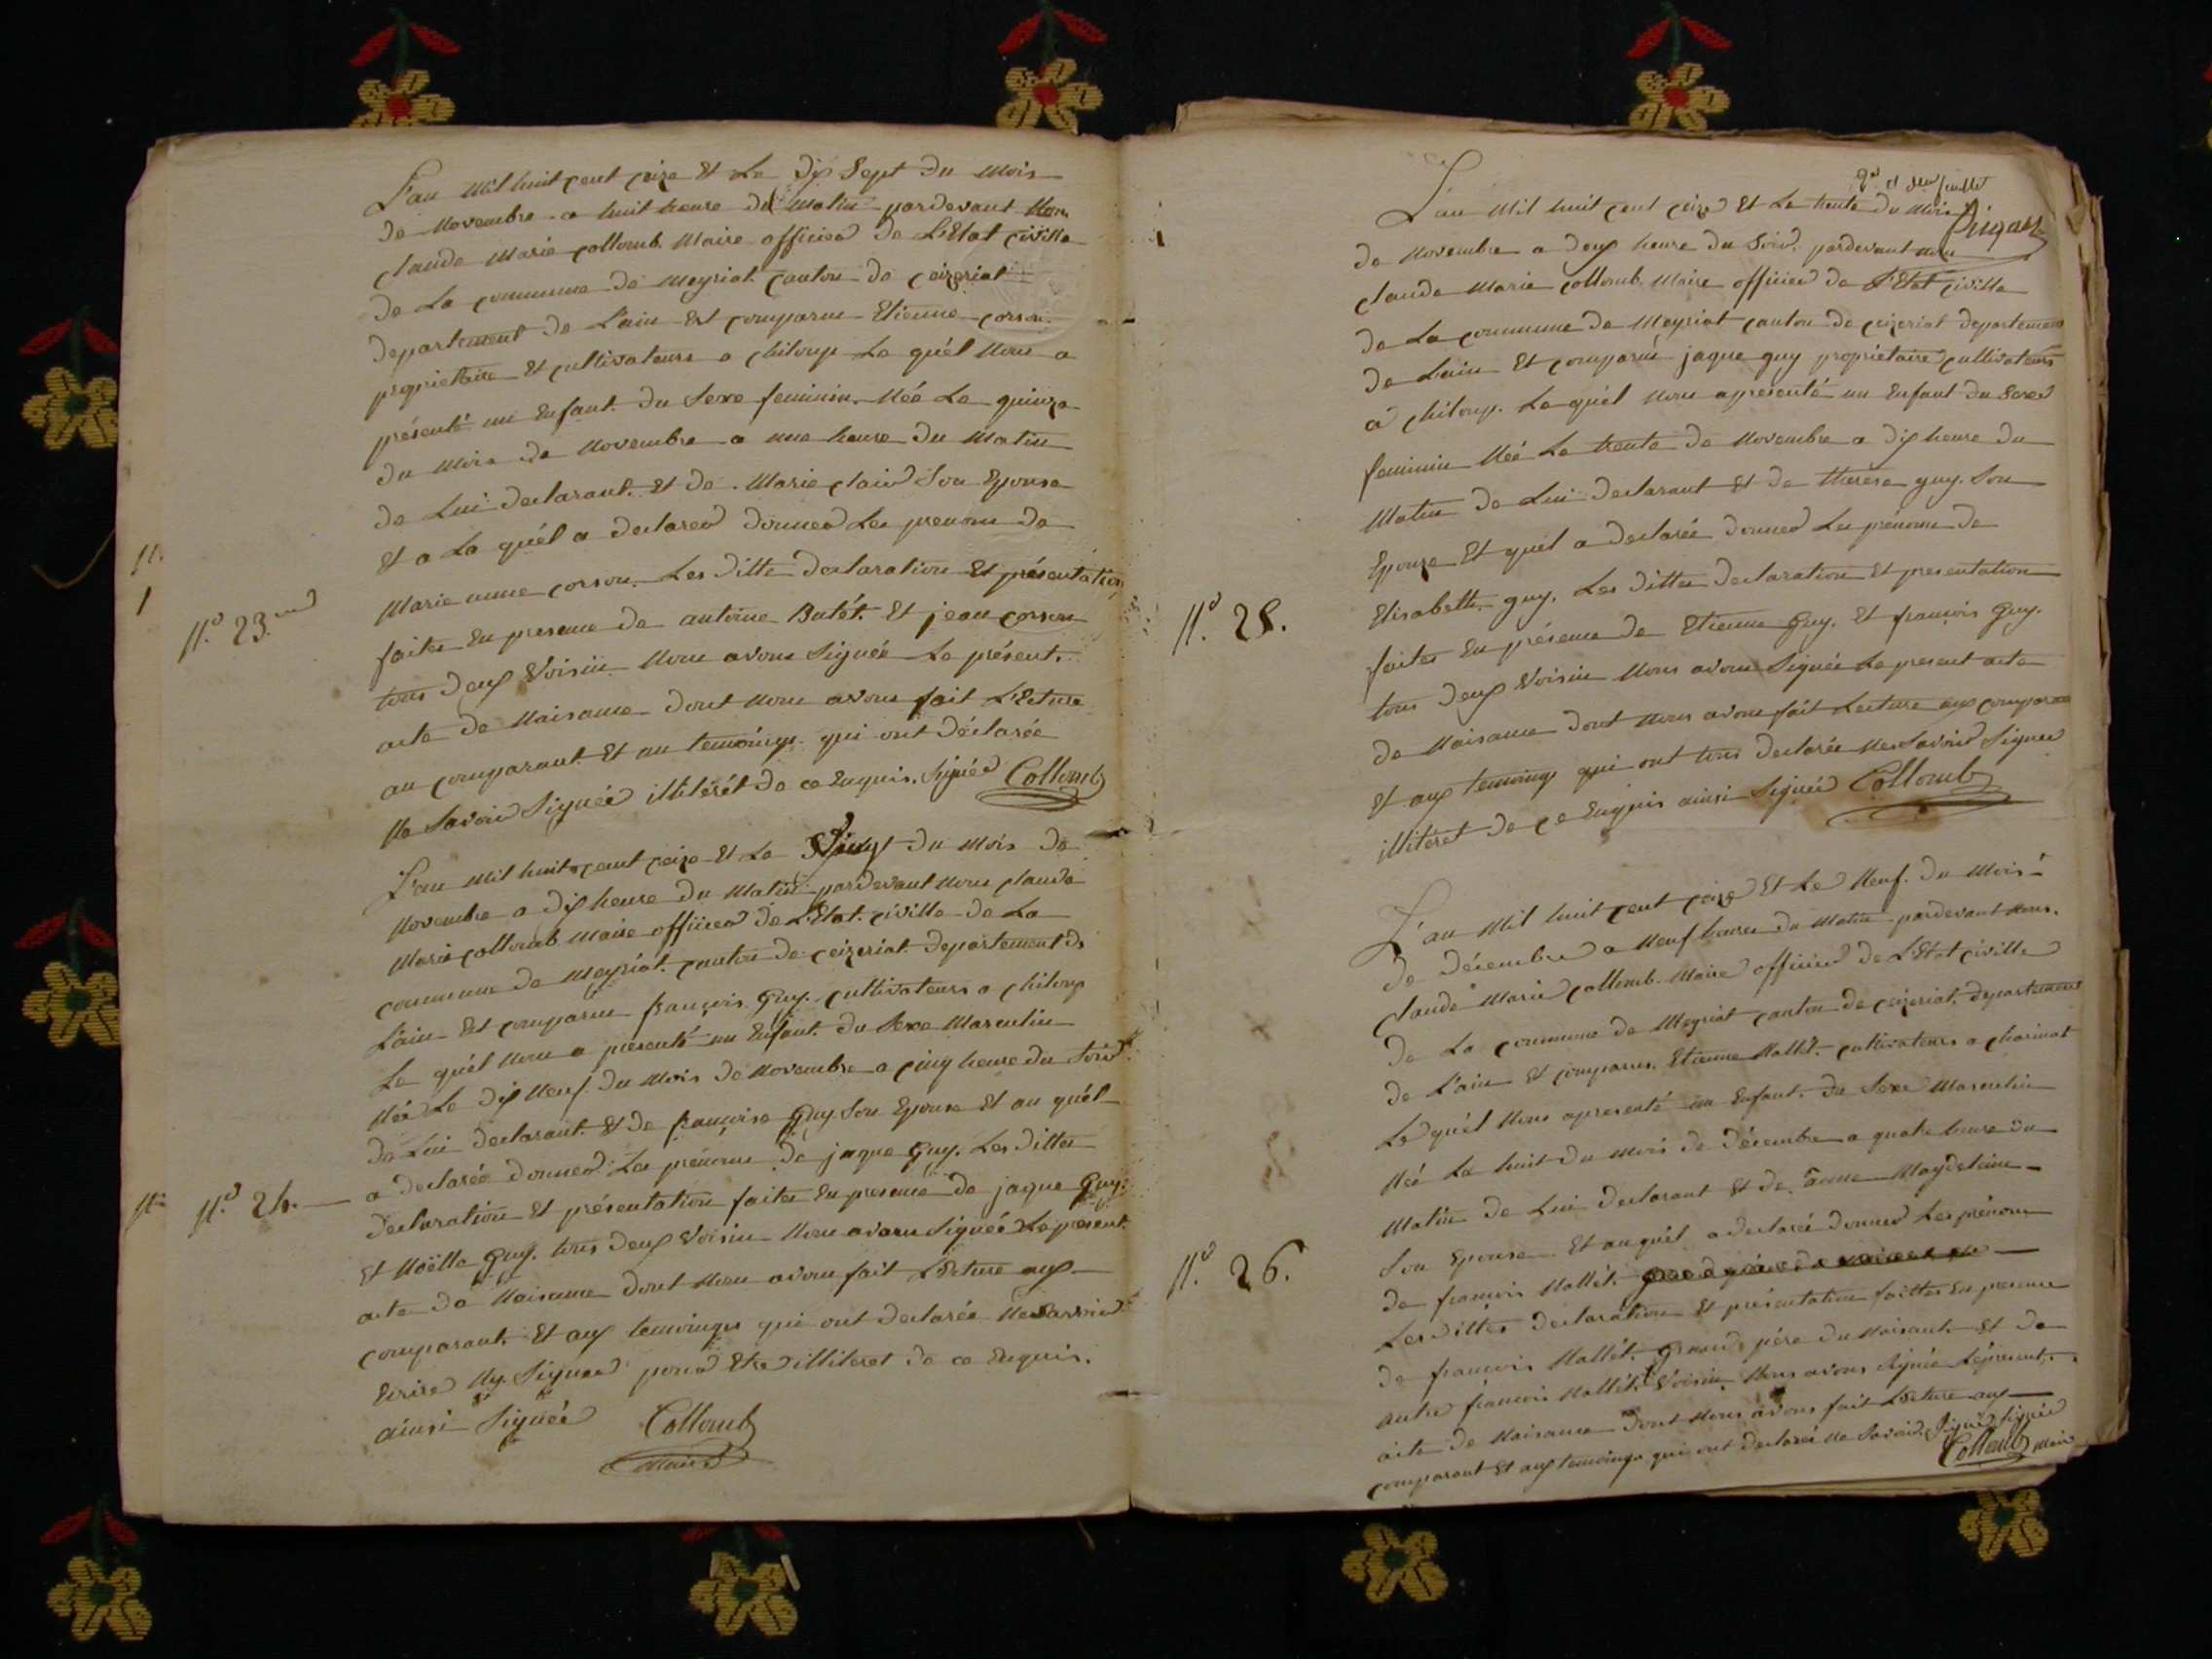 L'an Mil huit cent ceize Et Le dix Sept du Mois
de Novembre a huit heure du Matin pardevant Nou
claude Marie collomb. Maire officier de L'Etat civille
de La commune de Meyriat canton de ceizeriat
departement de L'ain Est comparu Etienne corson
proprietaire Et cultivateurs a chiloup Le quél Nous a
présenté un Enfant du Sexe feminin. Née Le quinze
du Mois de Novembre a une heure du Matin
de Lui declarant. Et de Marie clair Son Epouse
Et a La quél a declarer donner Les prenoms de
Marie anne corson. Les ditte declaration Et présentation
N.o 23.
faites En presence de antoine Butét. Et jean corson
tous deux Voisin Nous avons Signée Le présent.
acte de Naisance dont Nous avons fait L'Ecture
au comparant Et au temoings qui ont déclarée
Ne Savoir Signée illitérét de ce Enquis. Signée Collomb
L'an Mil huit cent ceize Et Le Vingt du Mois de
Novembre a dix heure du Matin pardevant Nous claude
Marie collomb Maire officier de L'Etat. civille de La
commune de Meyriat. canton de ceizeriat. departement de
L'ain Est comparu françois Guy. cultivateurs a chiloup
Le quél Nous a presenté un Enfant. du Sexe Masculin
Née Le dix Neuf du Mois de Novembre a cinq heure du Soir
de Lui declarant. Et de françoise Guy Son Epouse Et au quél
a declarée donner Les prénoms de jaque Guy. Les dittes
N.o 24.
declaration Et présentation faites En presence de jaque Guy.
Et Noëlle Guy. tous deux Voisin Nous avons Signée Le present.
acte de Naisance dont Nous avons fait L'Ecture aux
comparant. Et aux temoings qui ont declarée Ne Savoir
Ecrire Ny Signer pour Etre illiteret de ce Enquis.
ainsi Signée Collomb
Maire
L'an Mil huit cent ceize Et Le trente du Mois
de Novembre a deux heure du Soir. pardevant Nou
claude Marie collomb. Maire officier de L'Etat civille
de La commune de Meyriat canton de ceizeriat departement
de L'ain Est comparu jaque guy proprietaire cultivateurs
a chiloup. Le quél Nous a presenté un Enfant du Sexe
feminin Née Le trente de Novembre a dix heure du
Matin de Lui declarant Et de therese guy. Son
Epouse Et quél a declarée donner Les prénoms de
Elisabeth. guy. Les dittes declaration Et presentation
N.o 25.
faites En présence de Etienne Guy. Et françois Guy.
tous deux Voisin Nous avons Signée Le present acte
de Naisance dont Nous avons fait Lecture aux comparant
Et aux temoings qui ont tous declarée Ne Savoir Signer
illiteret de ce Enquis ainsi Signée Collomb
L'an Mil huit cent ceize Et Le Neuf. du Mois
de décembre a Neuf heures du Matin pardevant Nous.
claude Marie collomb. Maire officier de L'Etat civille
de La commune de Meyriat canton de ceizeriat. departement
de L'ain Et comparu. Etienne Mallét. cultivateurs a charinat
Le quél Nous a presenté un Enfant. du Sexe Masculin
Née Le huit du Mois de décembre a quatre heure du
Matin de Lui declarant Et de anne Maydeleine
Son Epouse Et au quél a declarée donner Les prénoms
N.o 26.
de françois Mallét.
Les dittes declaration Et présentation faittes En presence
de françois Mallét. Grand pére du Naisant. Et de
autre françois Mallét. Voisin. Nous avons Signée Le present.
acte de Naisance dont Nous avons fait L'Ecture aux
comparant Et aux temoings qui ont declarée Ne Savoir Signer Signée
Collomb Maire